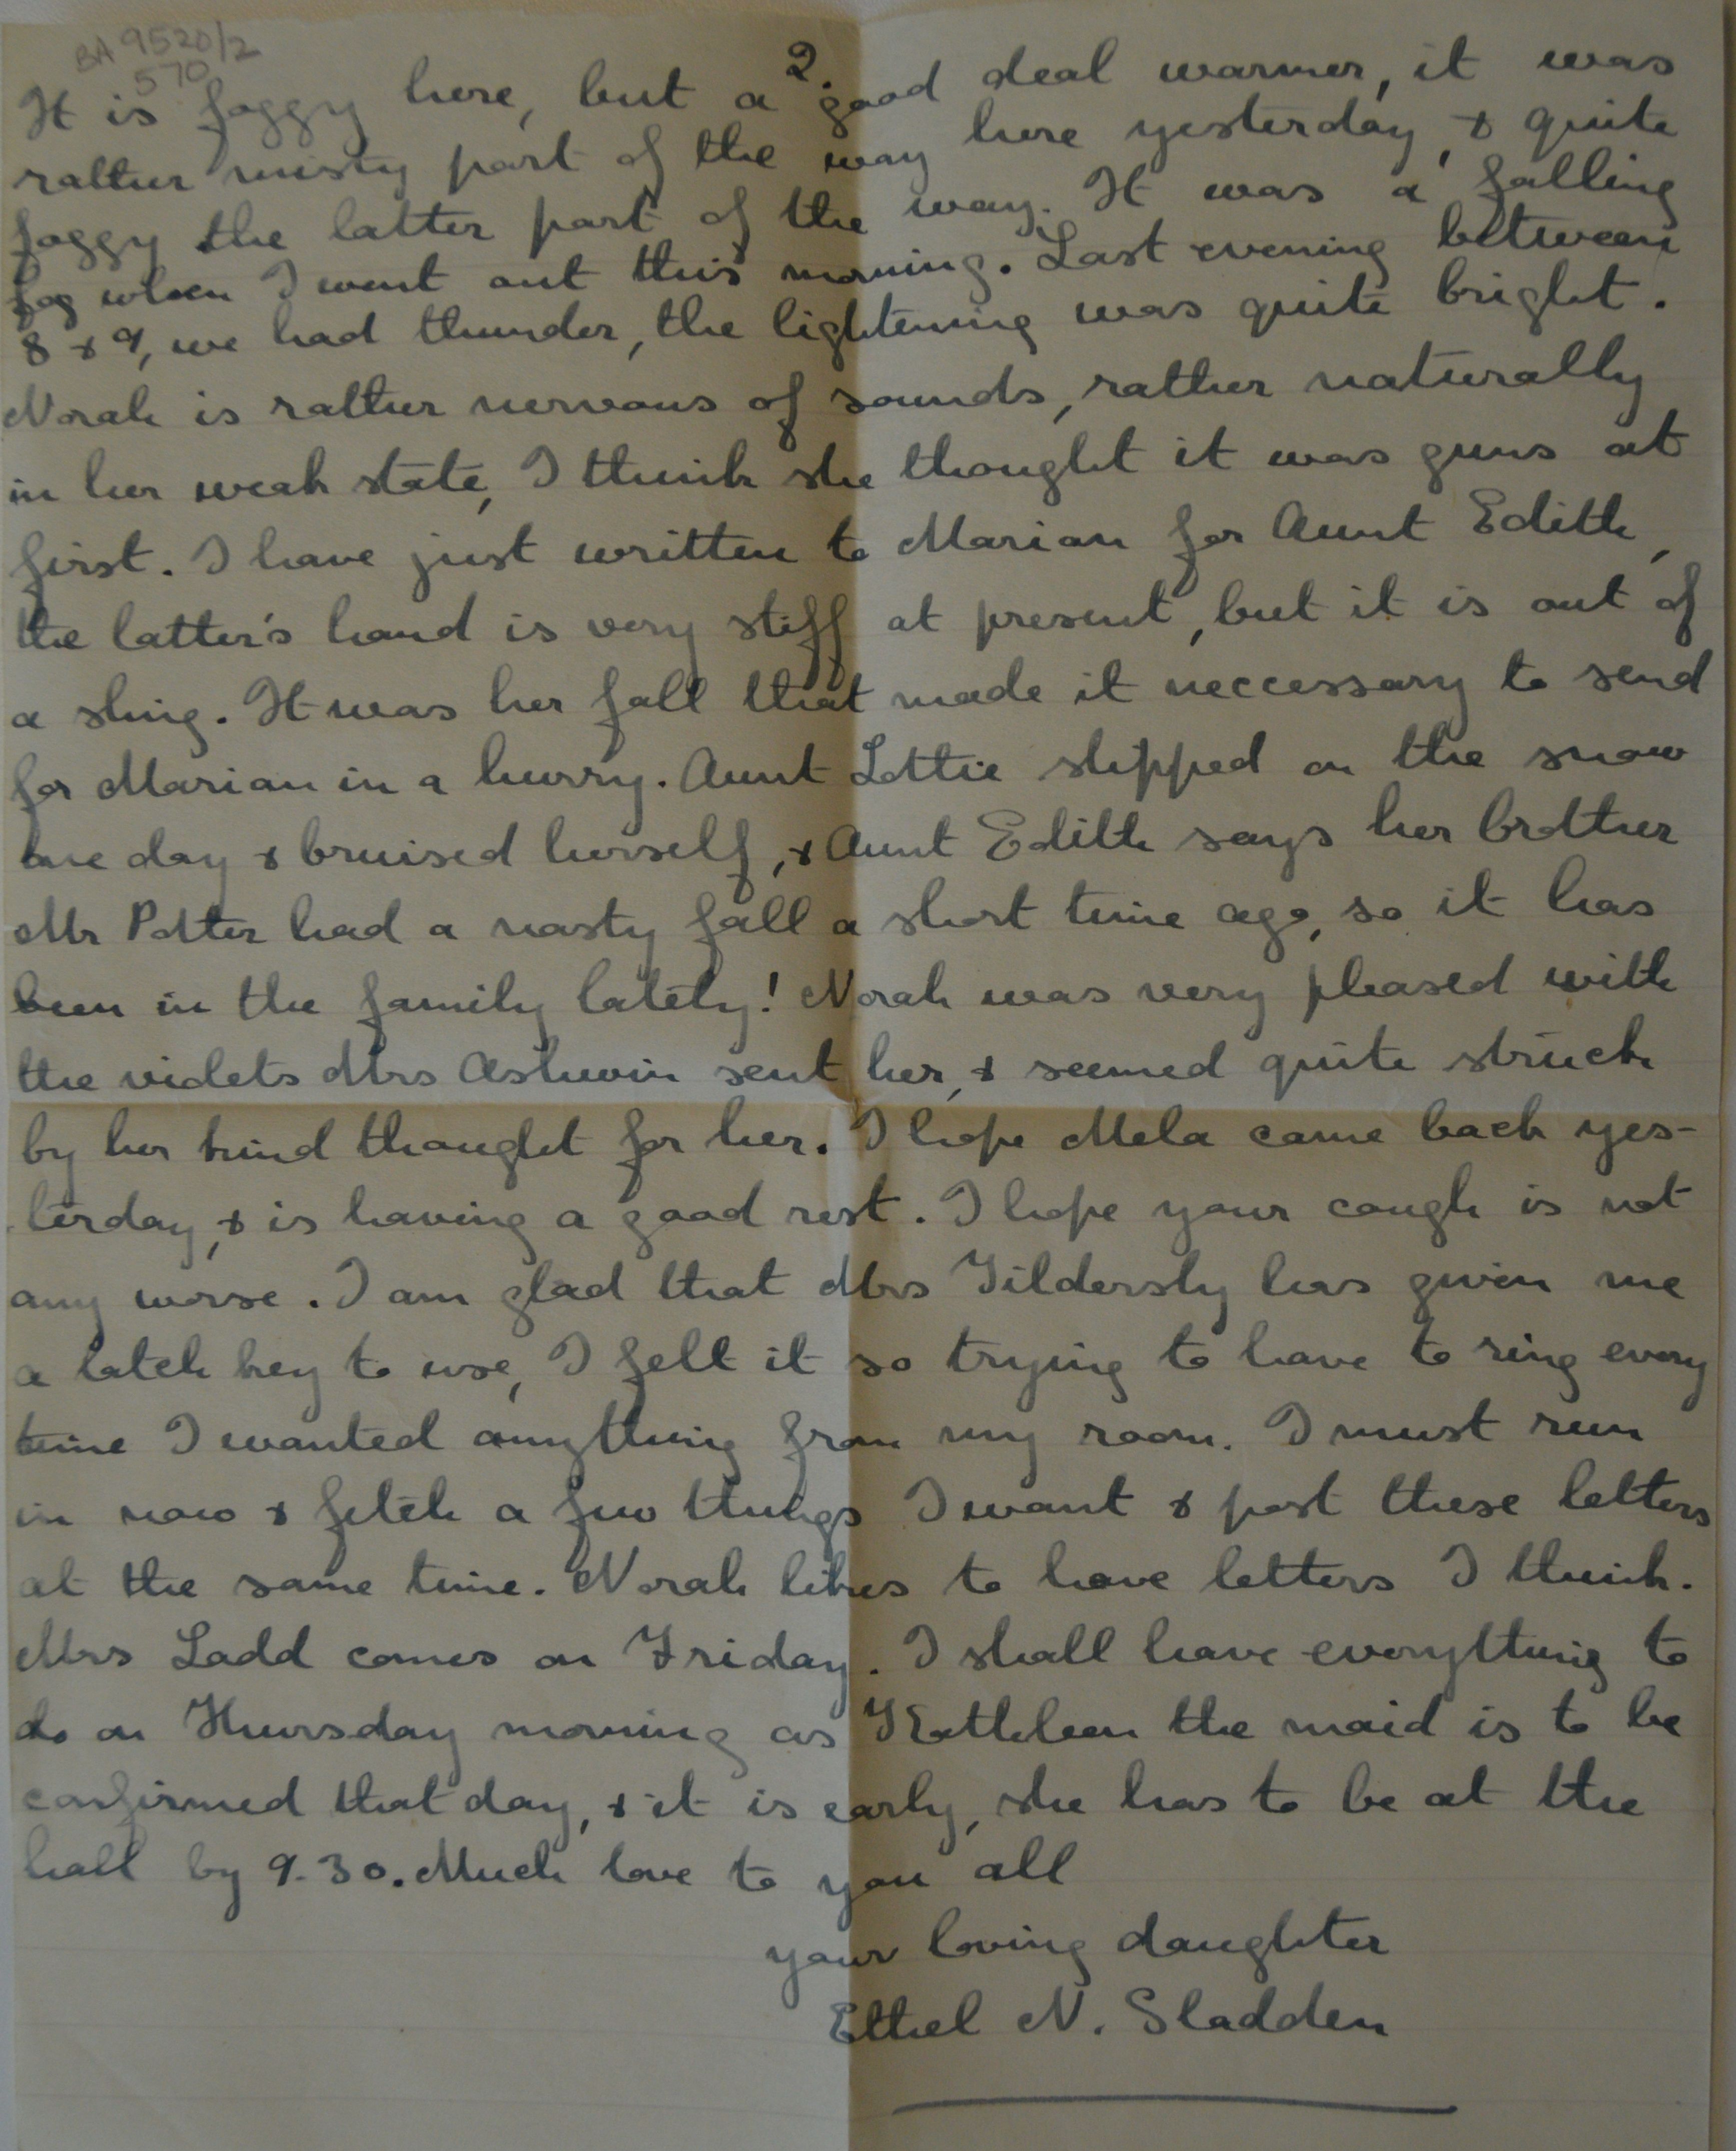 BA 9520/2
570
2.
It is foggy here, but a good deal warmer, it was
rather misty part of the way here yesterday, & quite
foggy the latter part of the way. It was a falling
fog when I went out this morning. Last evening between
8 & 9, we had thunder, the lightening was quite bright.
Norah is rather nervous of sounds, rather naturally
in her weak state, I think she thought it was guns at
first. I have just written to Marian for Aunt Edith,
the latter's hand is very stiff at present, but it is out of
a sling. It was her fall that made it neccessary to send
for Marian in a hurry. Aunt Lottie slipped on the snow
one day & bruised herself, & Aunt Edith says her brother
Mr Potter had a nasty fall a short time ago, so it has
been in the family lately! Norah was very pleased with
the violets Mrs Ashwin sent her, & seemed quite struck
by her kind thought for her. I hope Mela came back yes-
terday, & is having a good rest. I hope your cough is not
any worse. I am glad that Mrs Gildersly has given me
a latch key to use, I felt it so trying to have to ring every
time I wanted anything from my room. I must run
in now & fetch a few things I want & post these letters
at the same time. Norah likes to have letters I think.
Mrs Ladd comes on Friday. I shall have everything to
do on Thursday morning as Kathleen the maid is to be
confirmed that day, & it is early, she has to be at the
hall by 9.30. Much love to you all
your loving daughter
Ethel N. Sladden